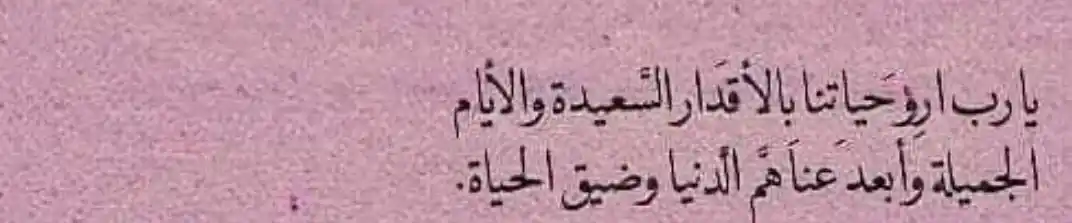 يا رب اروِ حَياتنا بالأقدَار السَّعيدة والأيام
الجميلة وأبعد عَناَ همَّ الدنيا وضيق الحياة.